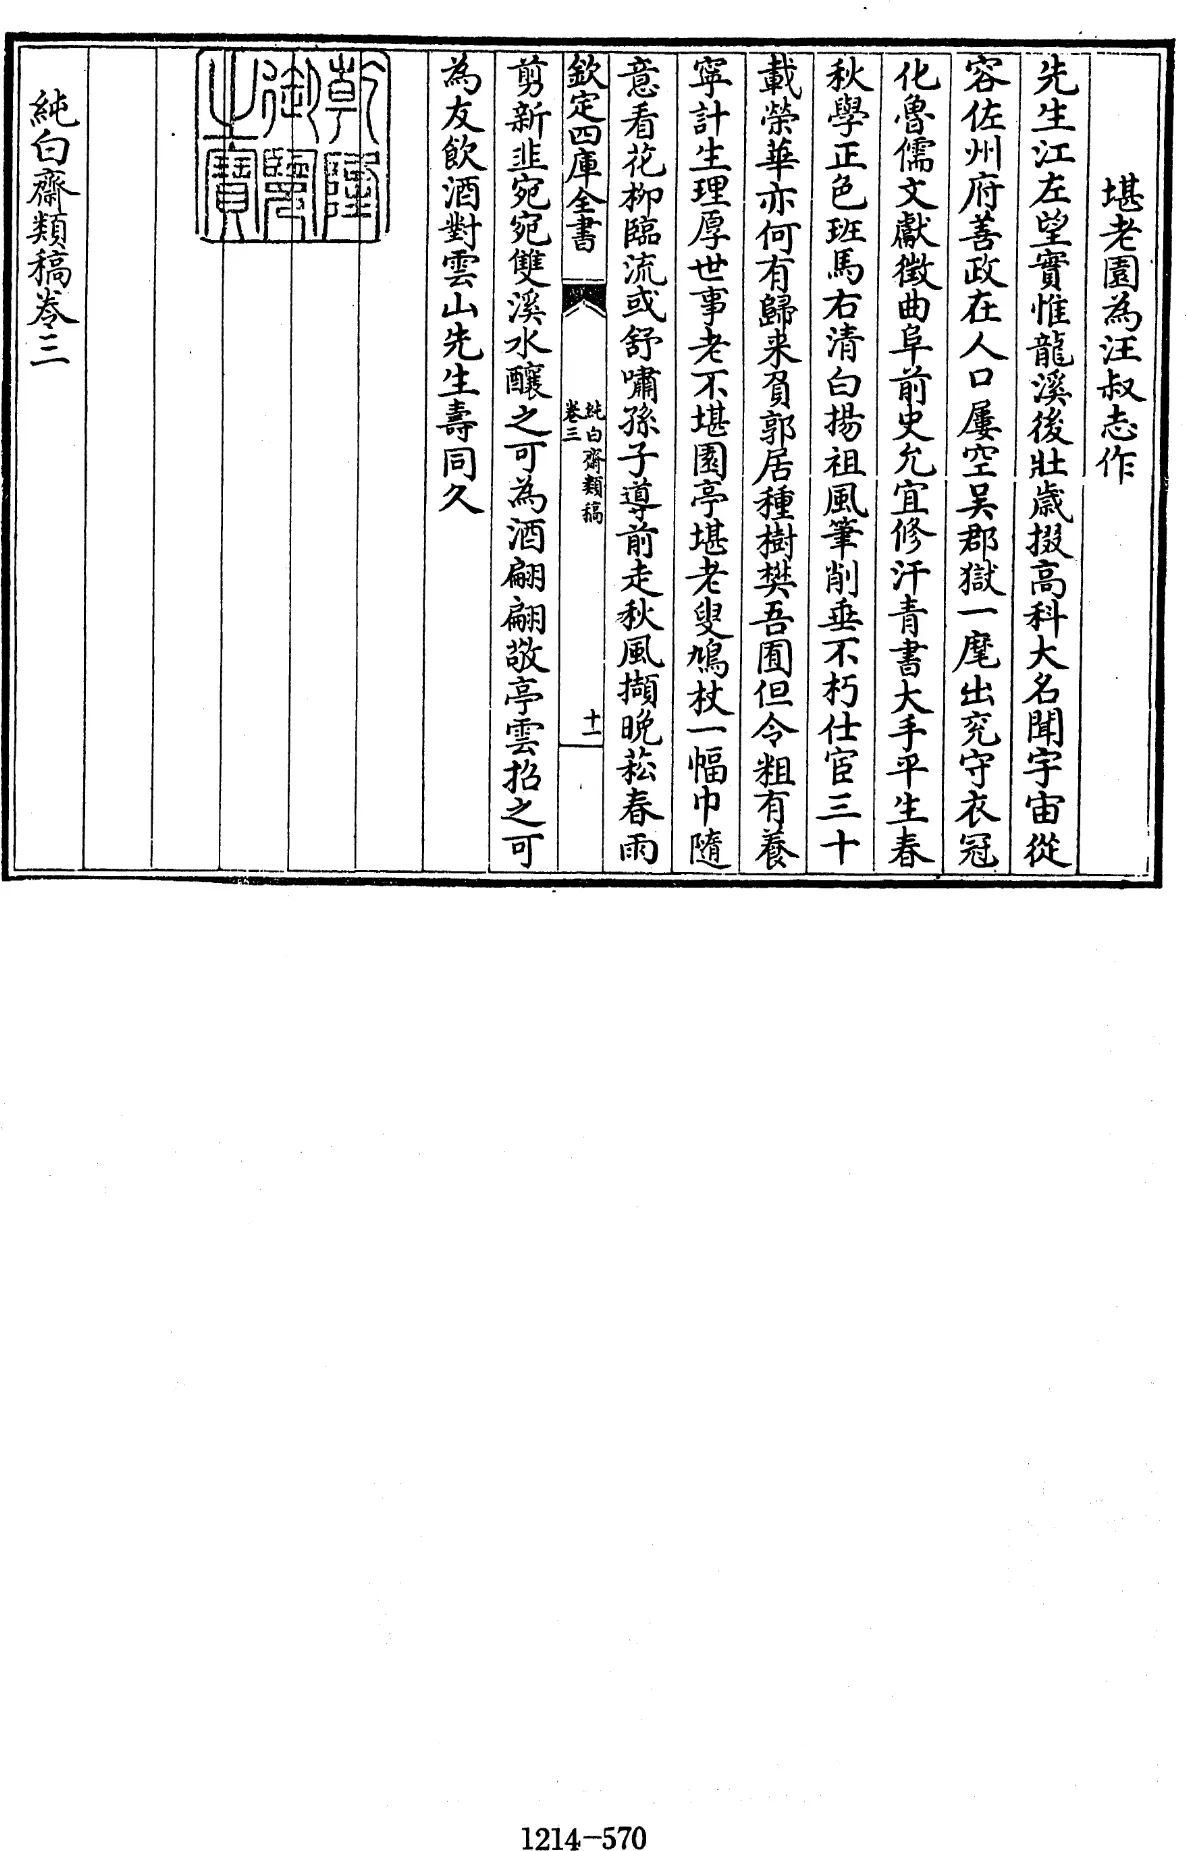 堪老園為汪叔志作
先生江左望實惟龍溪後壯歳掇高科大名聞宇宙從
容佐州府善政在人口屢空吴郡獄一麾出兖守衣冠
化魯儒文獻徴曲阜前史允宜修汗青書大手平生春
秋學正色班馬右清白揚祖風筆削垂不朽仕宦三十
載榮華亦何有歸来負郭居種樹樊吾囿但令粗有養
寜計生理厚世事老不堪園亭堪老叟鳩杖一幅巾隨
意看花柳臨流或舒嘯孫子導前走秋風擷晩菘春雨
欽定四庫全書
純白齋類稿
卷三
十一
剪新韭宛宛雙溪水釀之可為酒翩翩敬亭雲招之可
為友飲酒對雲山先生壽同久
乾隆
御覽
之寳
純白齋類稿巻三
1214-570